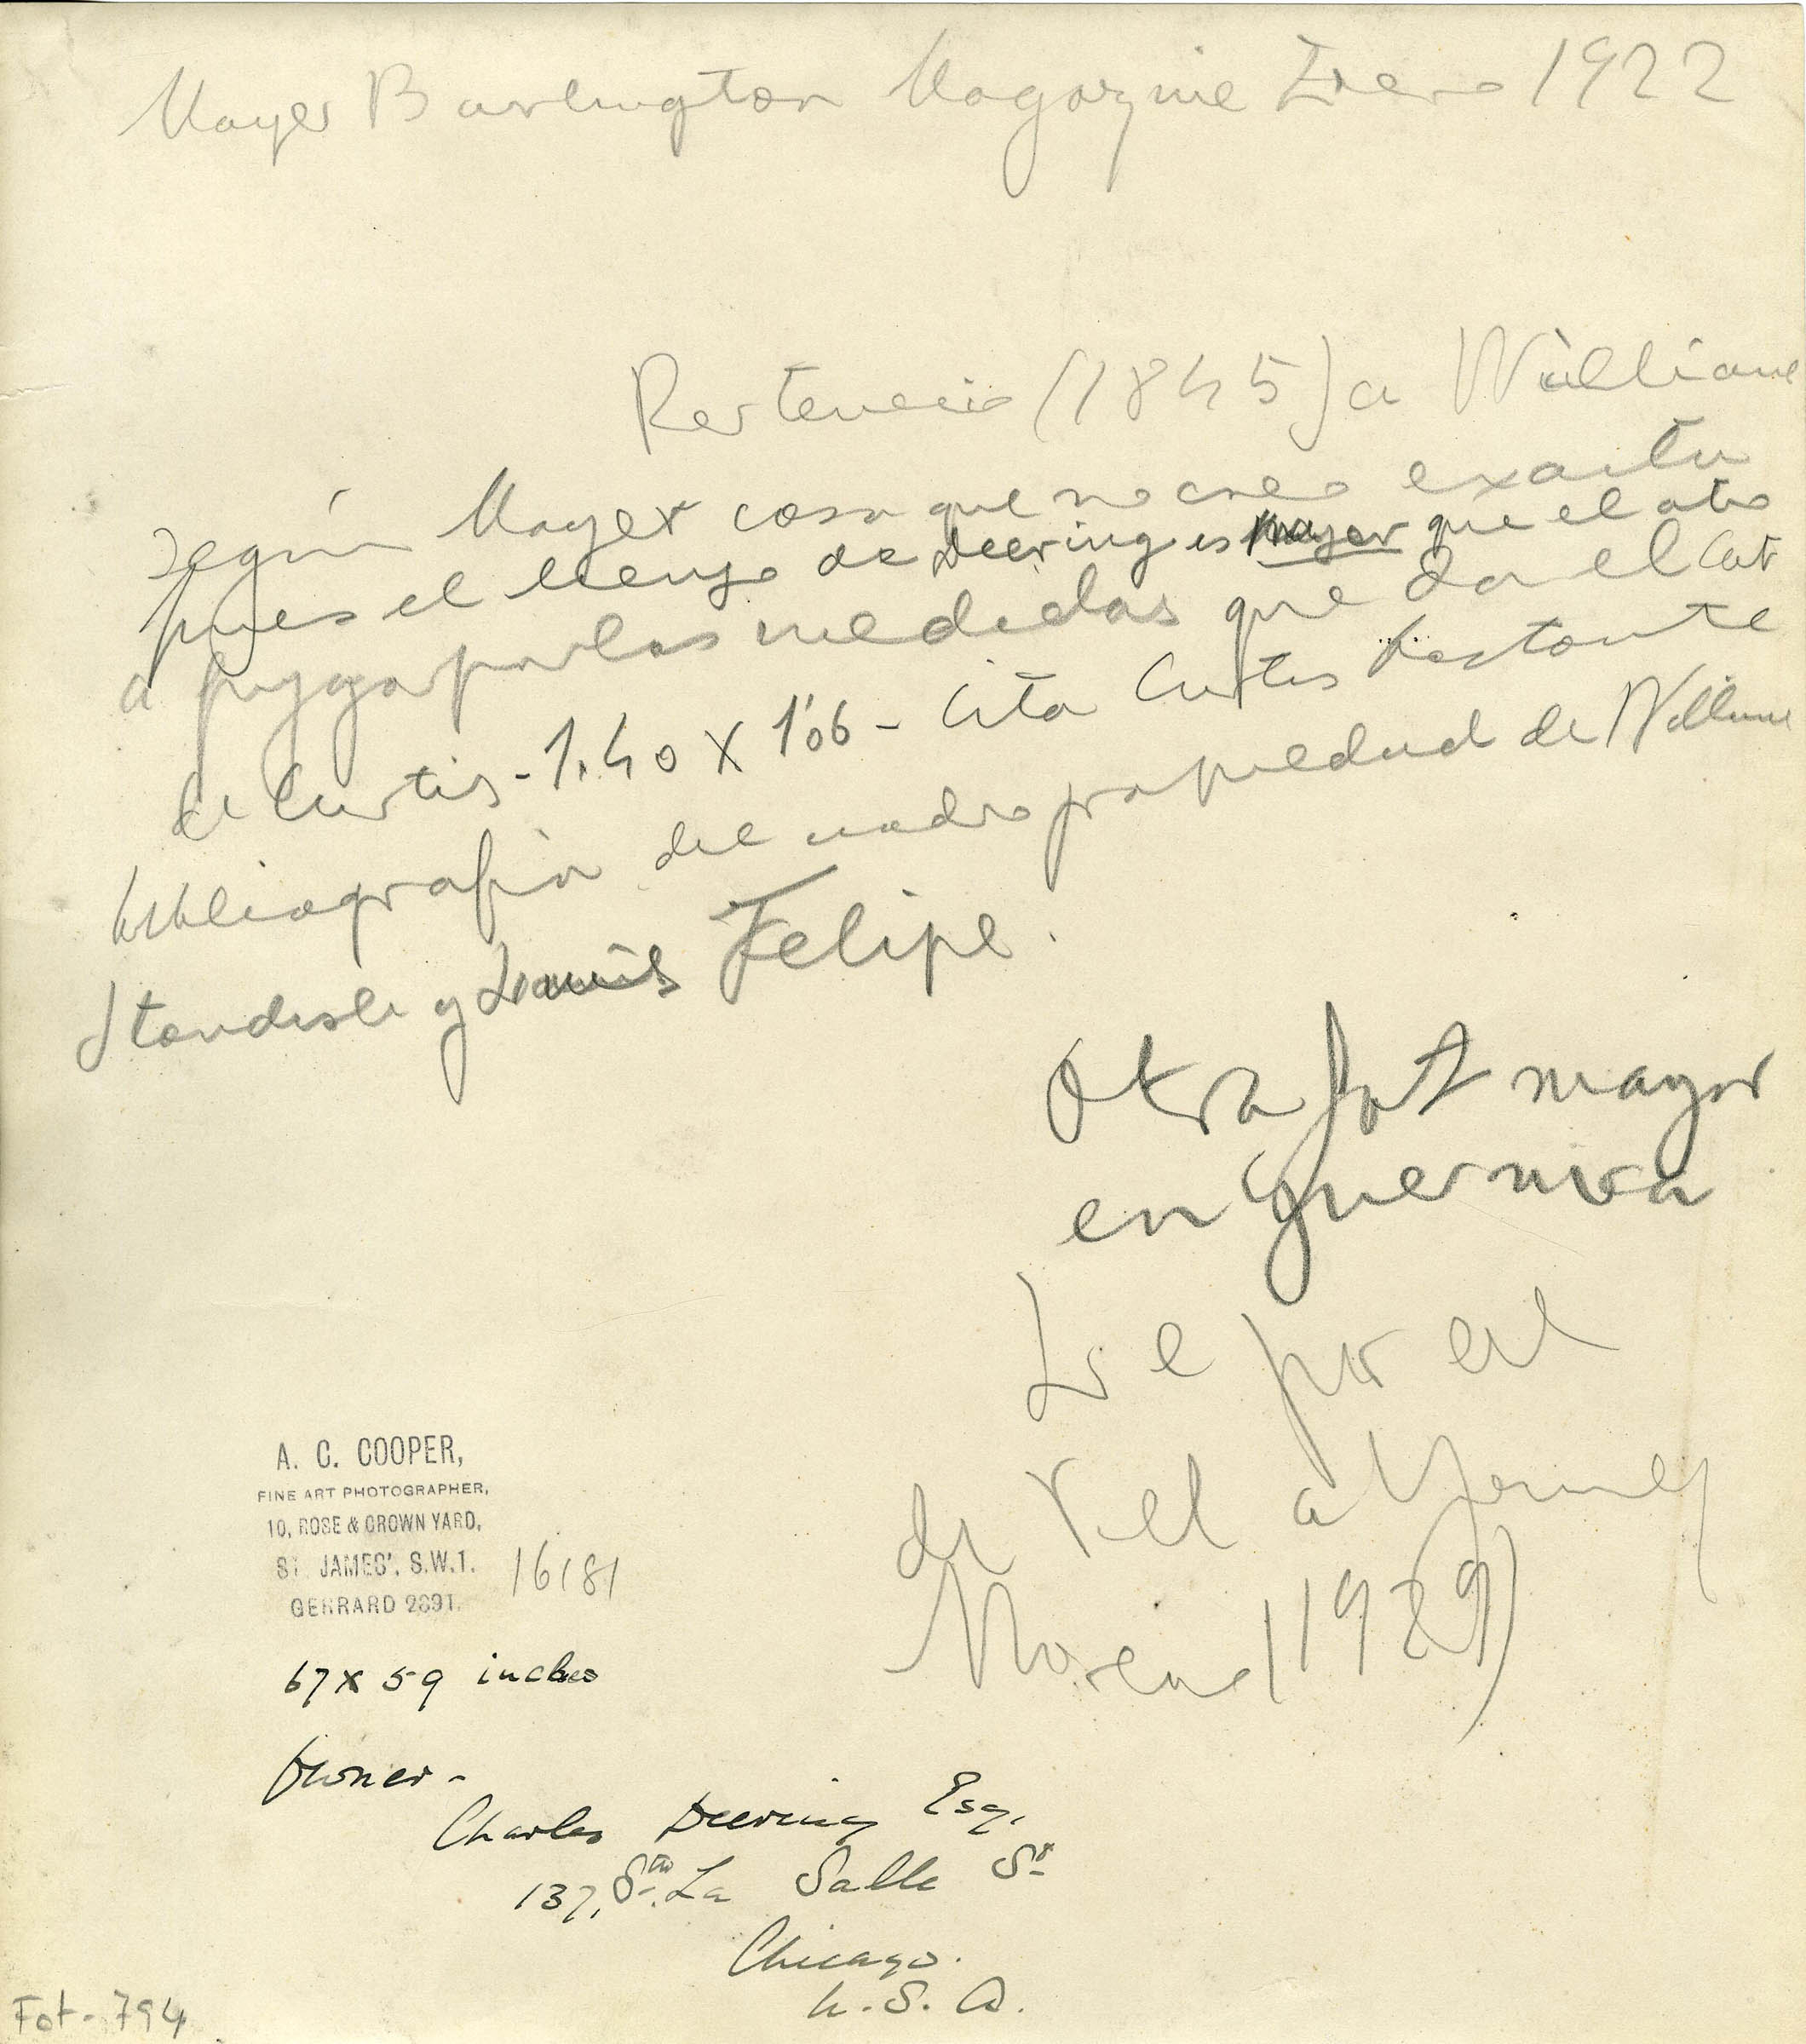 Mayer Burlington Magazine Enero 1922
Pertenecio (1845) a William
según Mayer cosa que no creo exacta
pues el lienzo de Deering es mayor que el otro
a juzgar por las medidas que da el Cat
de Curtis - 1.40 X 1'06 - Cita Curtis bastante
bibliografía del cuadro propiedad de William
Standish y Louis Felipe.
Otra fot mayor
en Guernica
de Vel a Gomez
Moreno (1929)
A. C. COOPER,
FINE ART PHOTOGRAPHER,
10, ROSE & CROWN YARD,
ST. JAMES', S.W.1.
16181
GERRARD 2691.
67 X 59 inches
Owner -
Charles Deering Esq,
137, Sth. La Salle St
Chicago.
U. S. A.
Fot - 794